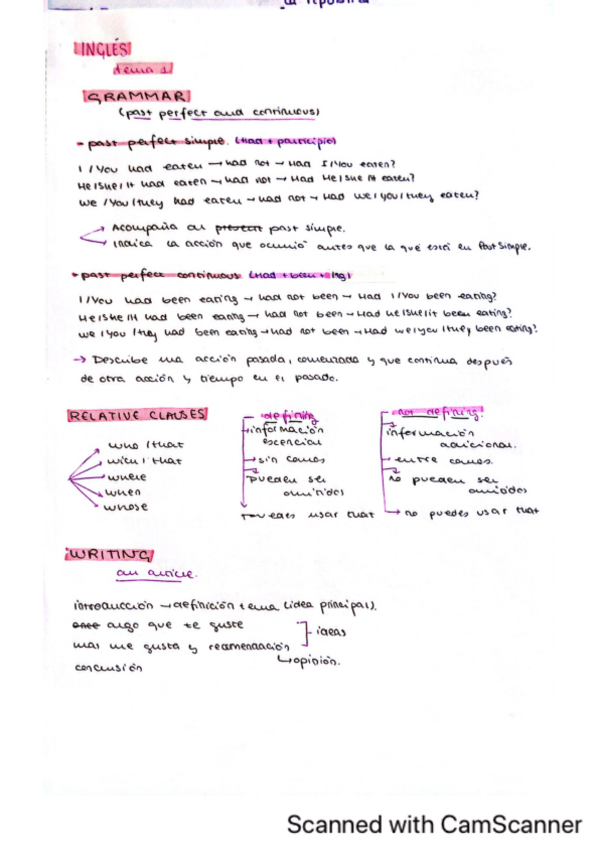 INGLÉS
tema 1
GRAMMAR
(past perfect and continuous)
- past perfect simple. (Had + participio)
I / You had eaten → had not → Had I/You eaten?
He/she/it had eaten → had not → Had He/she/it eaten?
we /You/they had eaten → had not → Had we/you/they eaten?
Acompaña al present past simple.
Indica la acción que ocurrió antes que la que está en Past Simple.
• past perfect continuous (Had + been + ing)
I/You had been eating → had not been → Had I/You been eating?
He/she/it had been eating → had not been → Had He/she/it been eating?
we / you / they had been eating → had not been → Had we/you/they been eating?
→ Describe una acción pasada, comenzada y que continua después
de otra acción y tiempo en el pasado.
RELATIVE CLAUSES
who / that
wich / that
where
when
whose
defining
información
escencial
sin comas
pueden ser
omitidos
puedes usar that
not defining:
información
adicional.
entre comas.
no pueden ser
omitidos
no puedes usar that
WRITING
an article.
introducción → definición tema (idea principal).
algo que te guste
mas me gusta y recomendación
ideas
opinión.
conclusión
Scanned with CamScanner